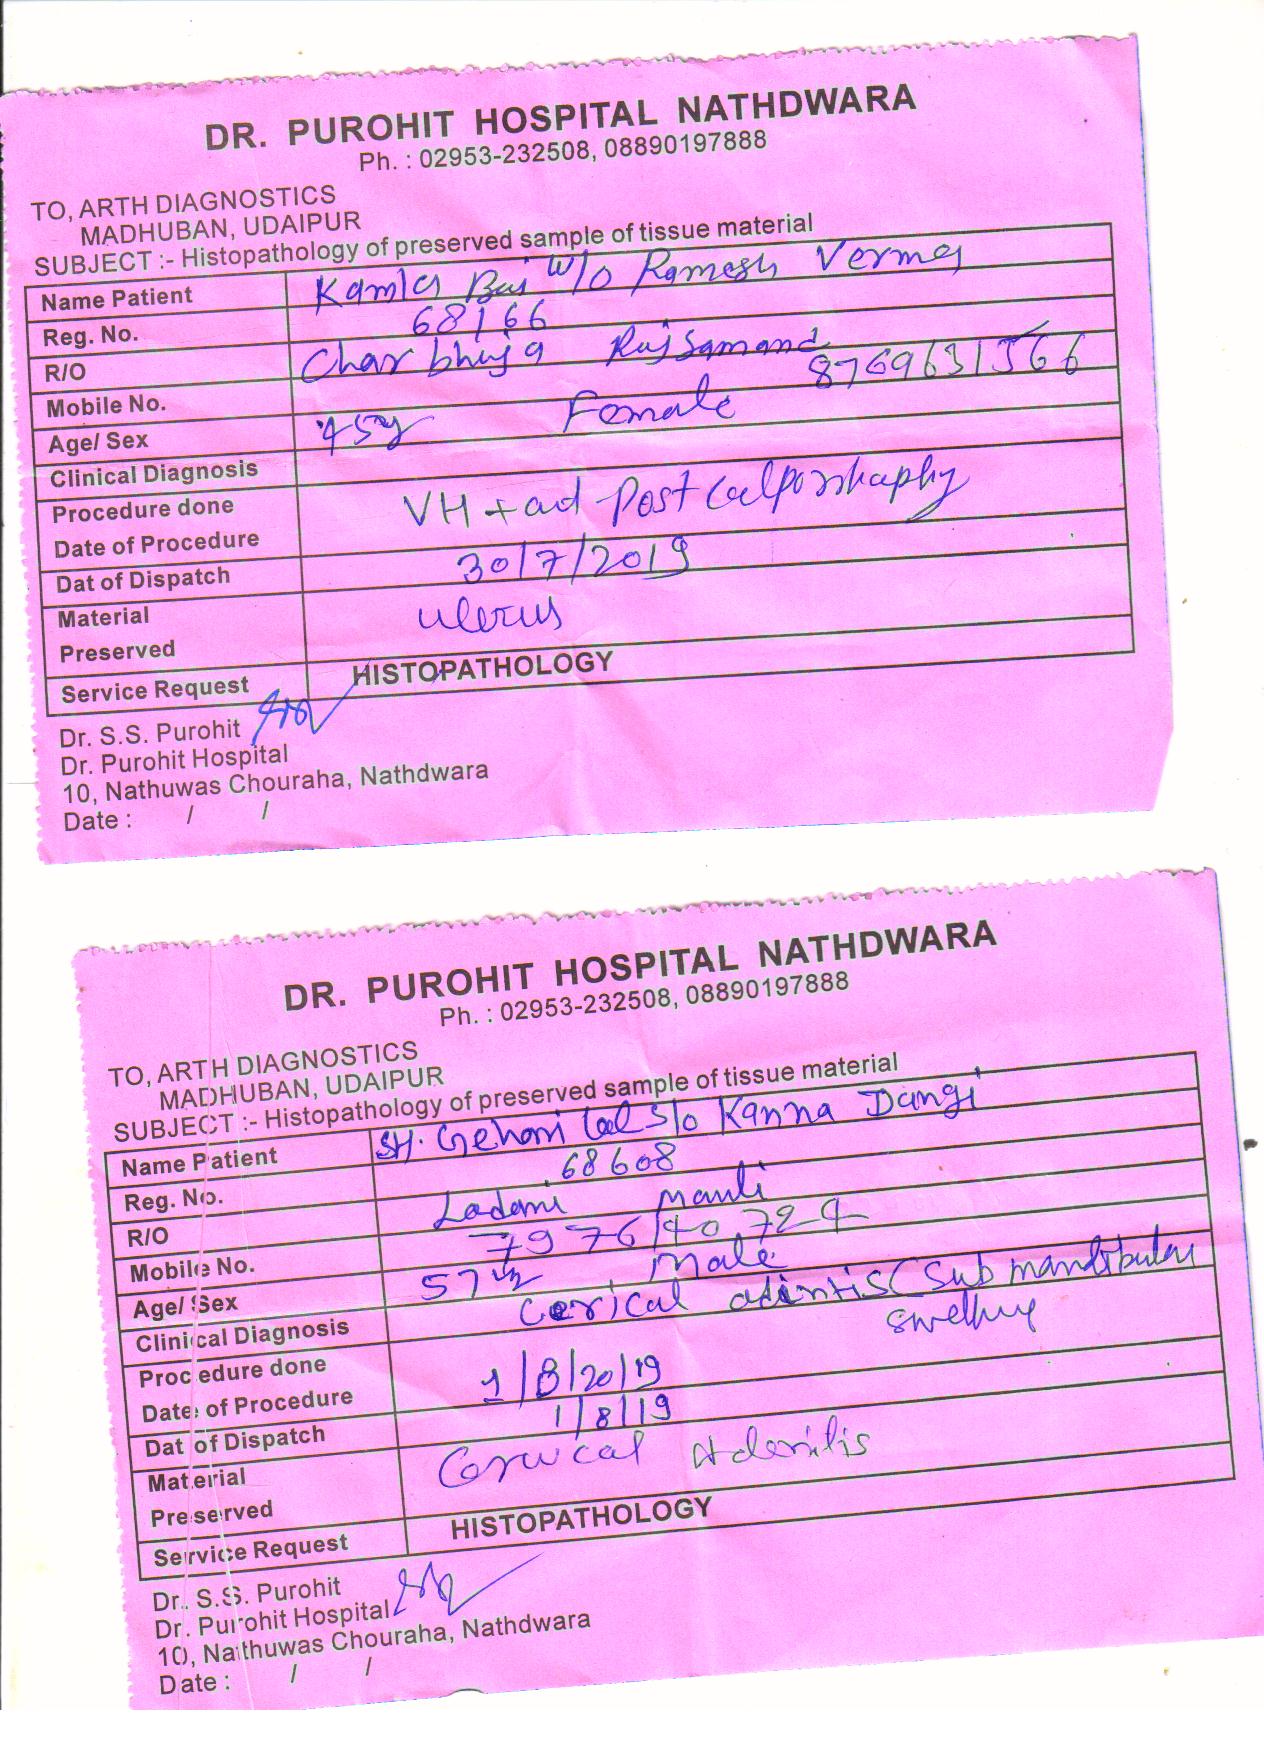 DR. PUROHIT HOSPITAL NATHDWARA
Ph. : 02953-232508, 08890197888
TO, ARTH DIAGNOSTICS
MADHUBAN, UDAIPUR
SUBJECT :- Histopathology of preserved sample of tissue material
Name Patient Kamla Bai W/o Ramesh Verma
Reg. No. 68166
R/O Charbhuja Rajsamand
Mobile No. 8769631566
Age/ Sex 45y Female
Clinical Diagnosis
Procedure done VH + and Post Colporrhaphy
Date of Procedure
Dat of Dispatch 30/7/2019
Material uterus
Preserved
Service Request HISTOPATHOLOGY
Dr. S.S. Purohit
Dr. Purohit Hospital
10, Nathuwas Chouraha, Nathdwara
Date : / /
DR. PUROHIT HOSPITAL NATHDWARA
Ph. : 02953-232508, 08890197888
TO, ARTH DIAGNOSTICS
MADHUBAN, UDAIPUR
SUBJECT :- Histopathology of preserved sample of tissue material
Name Patient SH. Gehari lal S/o Kanna Dangi
Reg. No. 68608
R/O Ladani Mauli
Mobile No. 7976140724
Age/ Sex 57 Male
Clinical Diagnosis Cerical adinitis (Sub mandibular
swelling
Procedure done
Date of Procedure 1/8/2019
Dat of Dispatch 1/8/19
Material Cervical Adenitis
Preserved
Service Request HISTOPATHOLOGY
Dr. S.S. Purohit
Dr. Purohit Hospital
10, Nathuwas Chouraha, Nathdwara
Date : / /